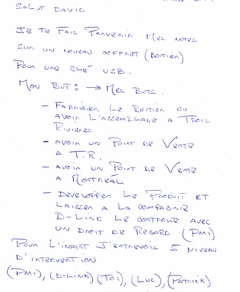 SALUT DAVID
JE TE FAIS PARVENIR MES NOTES
SUR UN NOUVEAU COFFRET (BOITIER)
POUR UNE CLÉ USB.
MON BUT: → MES BUTS.
- FABRIQUER LE BOITIER OU
AVOIR L'ASSEMBLAGE A TROIS
RIVIERES
- AVOIR UN POINT DE VENTE
A T.R.
- AVOIR UN POINT DE VENTE
A MONTREAL
- DEVELOPPER LE PRODUIT ET
LAISSER A LA COMPAGNIE
D-LINK LE CONTROLE AVEC
UN DROIT DE REGARD (PMI)
POUR L'INSTANT J'ENTREVOIS 5 NIVEAU
D'INTERVENTION
(PMI), (D-LINK) (TOI), (LUC), (PATRICK)